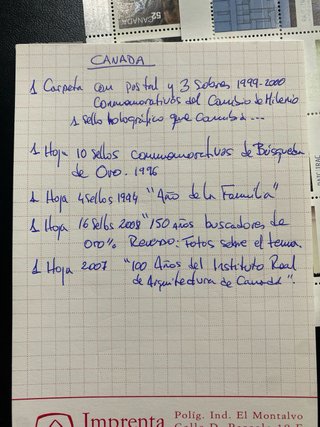 CANADA
52
CANADA
1 Carpeta con postal y 3 Sobres 1999-2000
Conmemorativos del Cambio de Milenio
1 sello holográfico que cambia...
1 Hoja 10 sellos conmemorativos de Búsqueda
de Oro. 1996
1 Hoja 4 sellos 1994 "Año de la Familia"
1 Hoja 16 sellos 2008 "150 años buscadores de
oro". Reverso: Fotos sobre el tema.
1 Hoja 2007 "100 Años del Instituto Real
de Arquitectura de Canadá".
Imprenta
Políg. Ind. El Montalvo